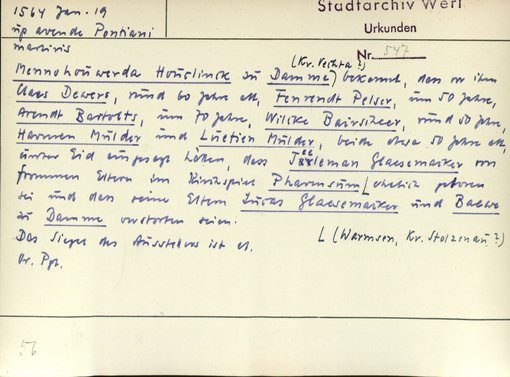 Stadtarchiv Werl
Urkunden
Nr. 547
1564 Jan. 19
up avende Pontiani
martiris
(Kr. Vechta?)
Mennohouwerda Houclinck zu Damme) bekennt, dass vor ihm
Claes Dewers, rund 60 Jahre alt, Fenrendt Pelser, um 50 Jahre,
Arendt Bartolts, um 70 Jahre, Wilcke Bairscheer, rund 50 Jahre,
Harmen Mulder und Luetien Mulder, beide etwa 50 Jahre alt,
unter Eid ausgesagt hätten, dass Tæleman Glaesemaker von
frommen Eltern im Kirchspiel Pharmsum L ehelich geboren
sei und dass seine Eltern Lucas Glaesemacker und Baewe
zu Damme verstorben seien.
Das Siegel des Ausstellers ist ab.
Or. Pgt.
L (Warmsen, Kr. Stolzenau?)
56